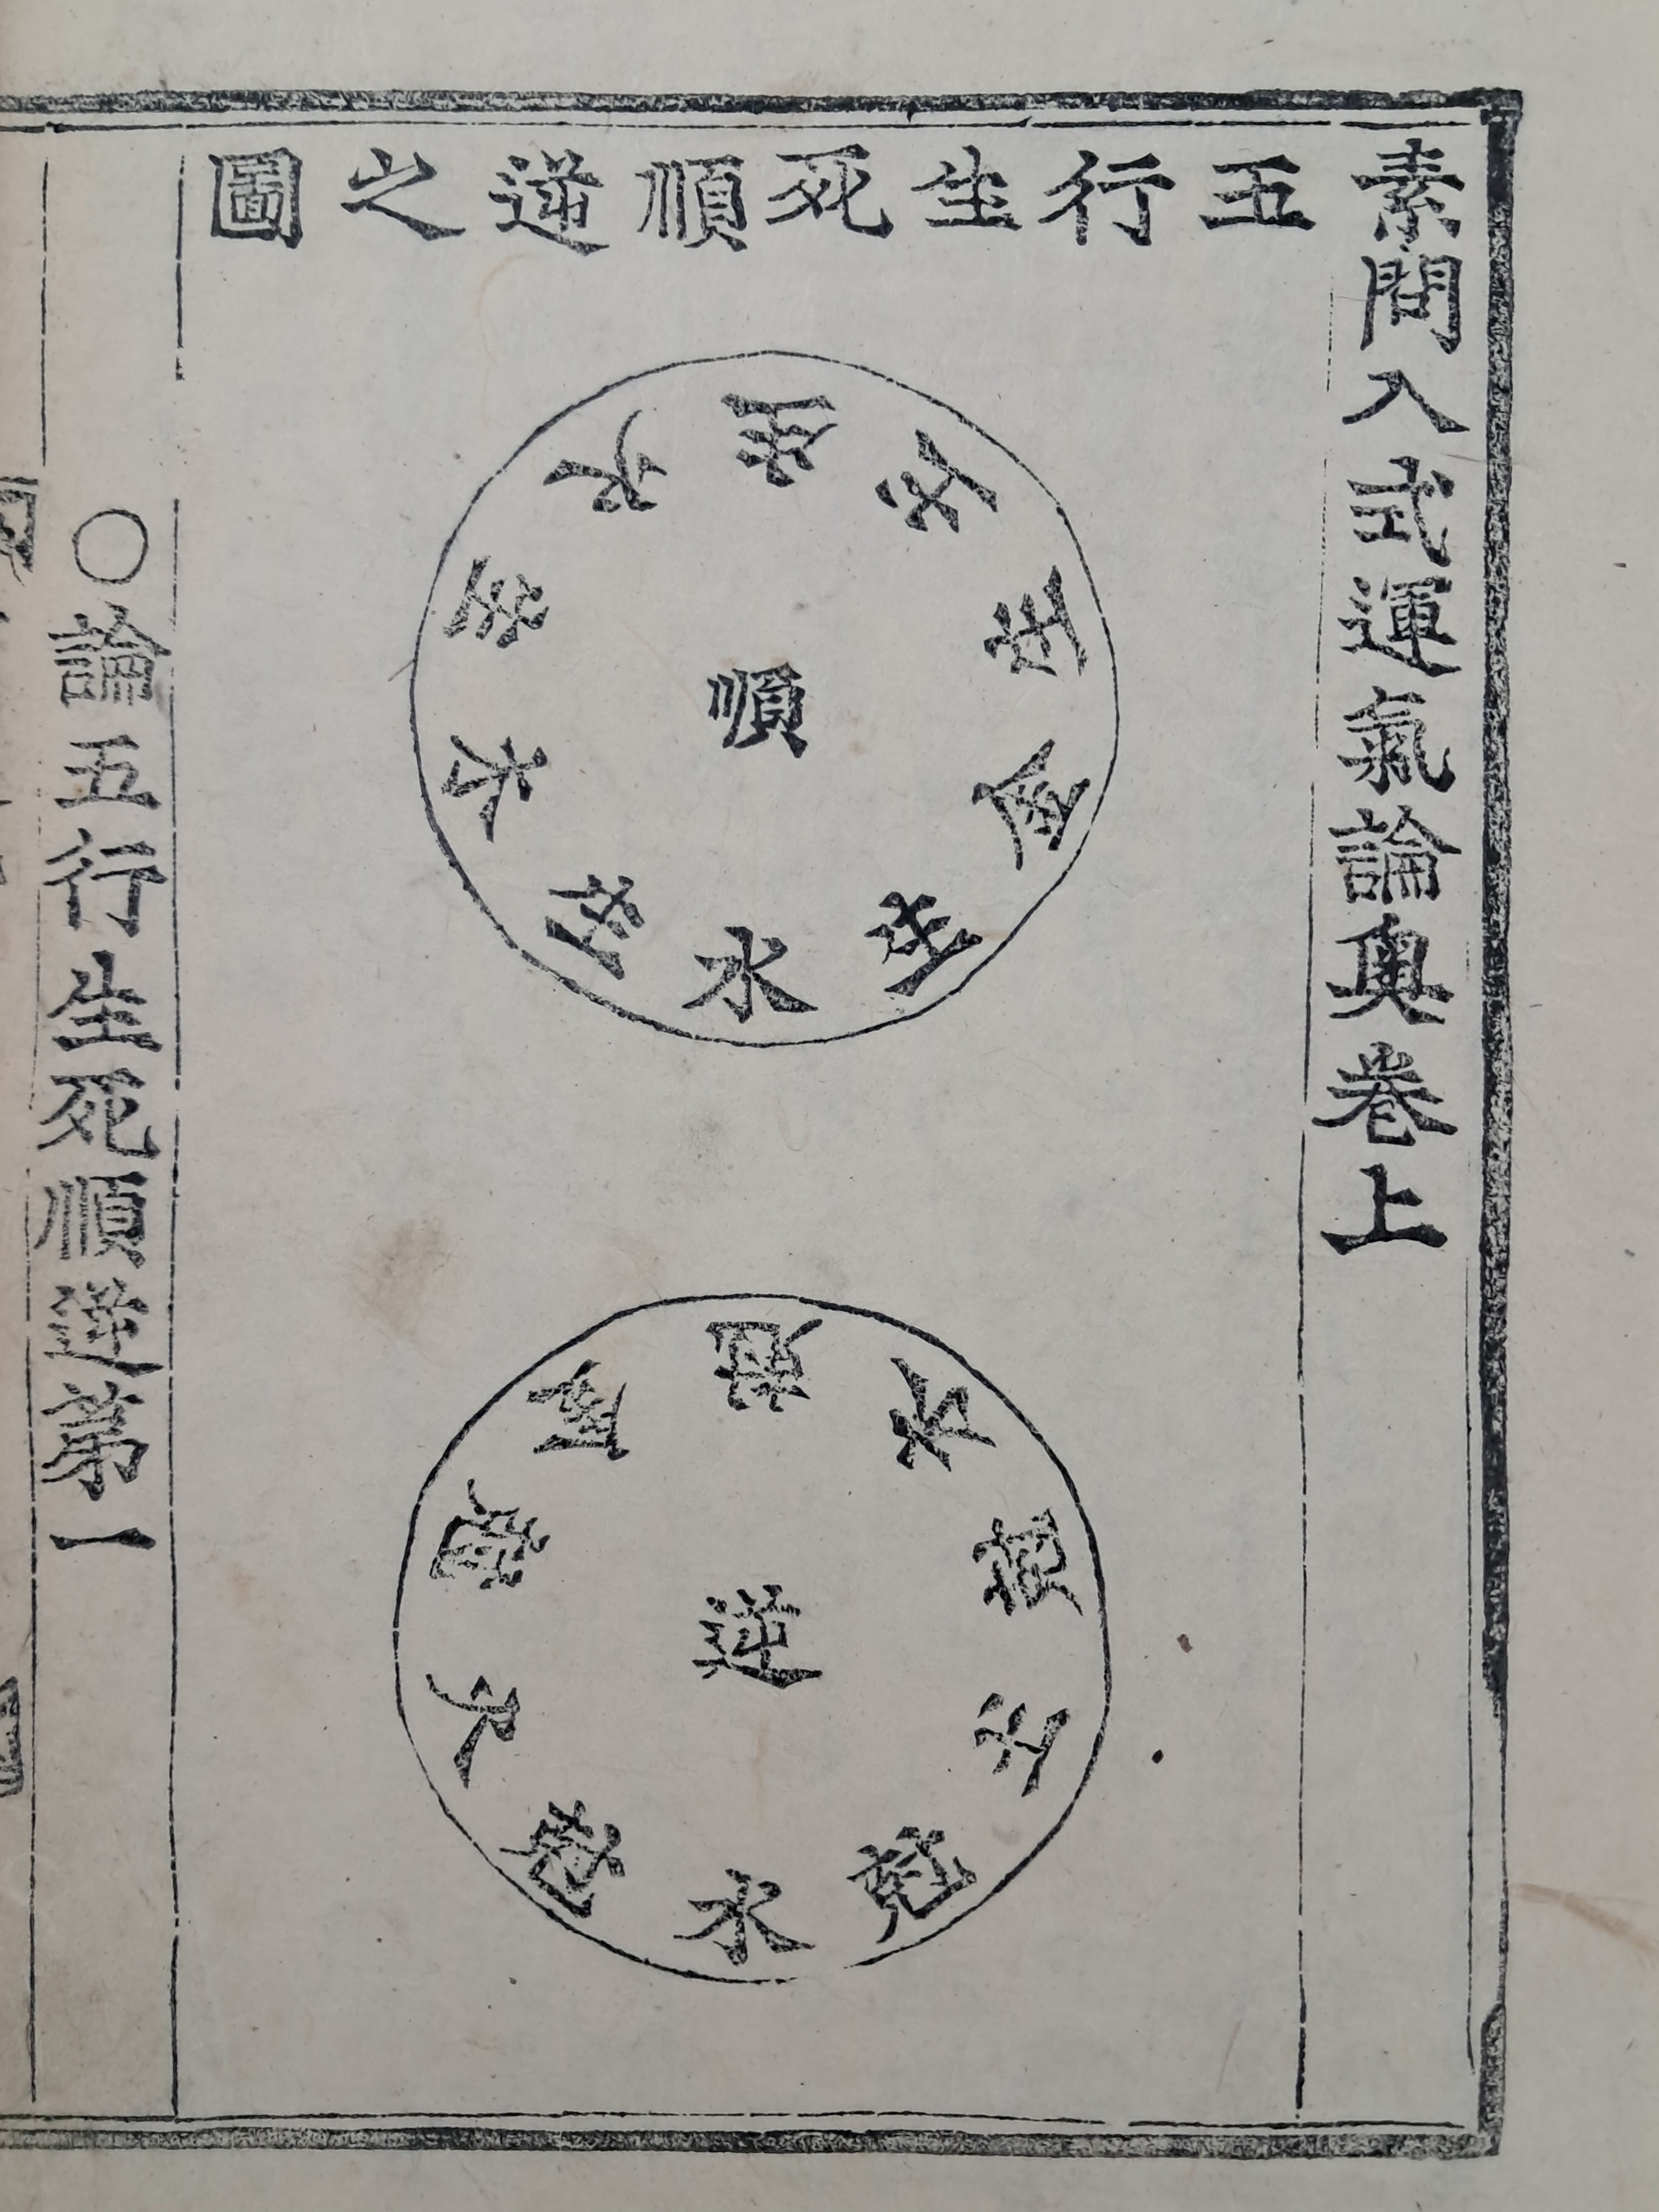 素問入式運氣論奧卷上
五行生死順逆之圖
順
水生木生火生土生金生
逆
水尅火尅金尅木尅土尅
○論五行生死順逆第一